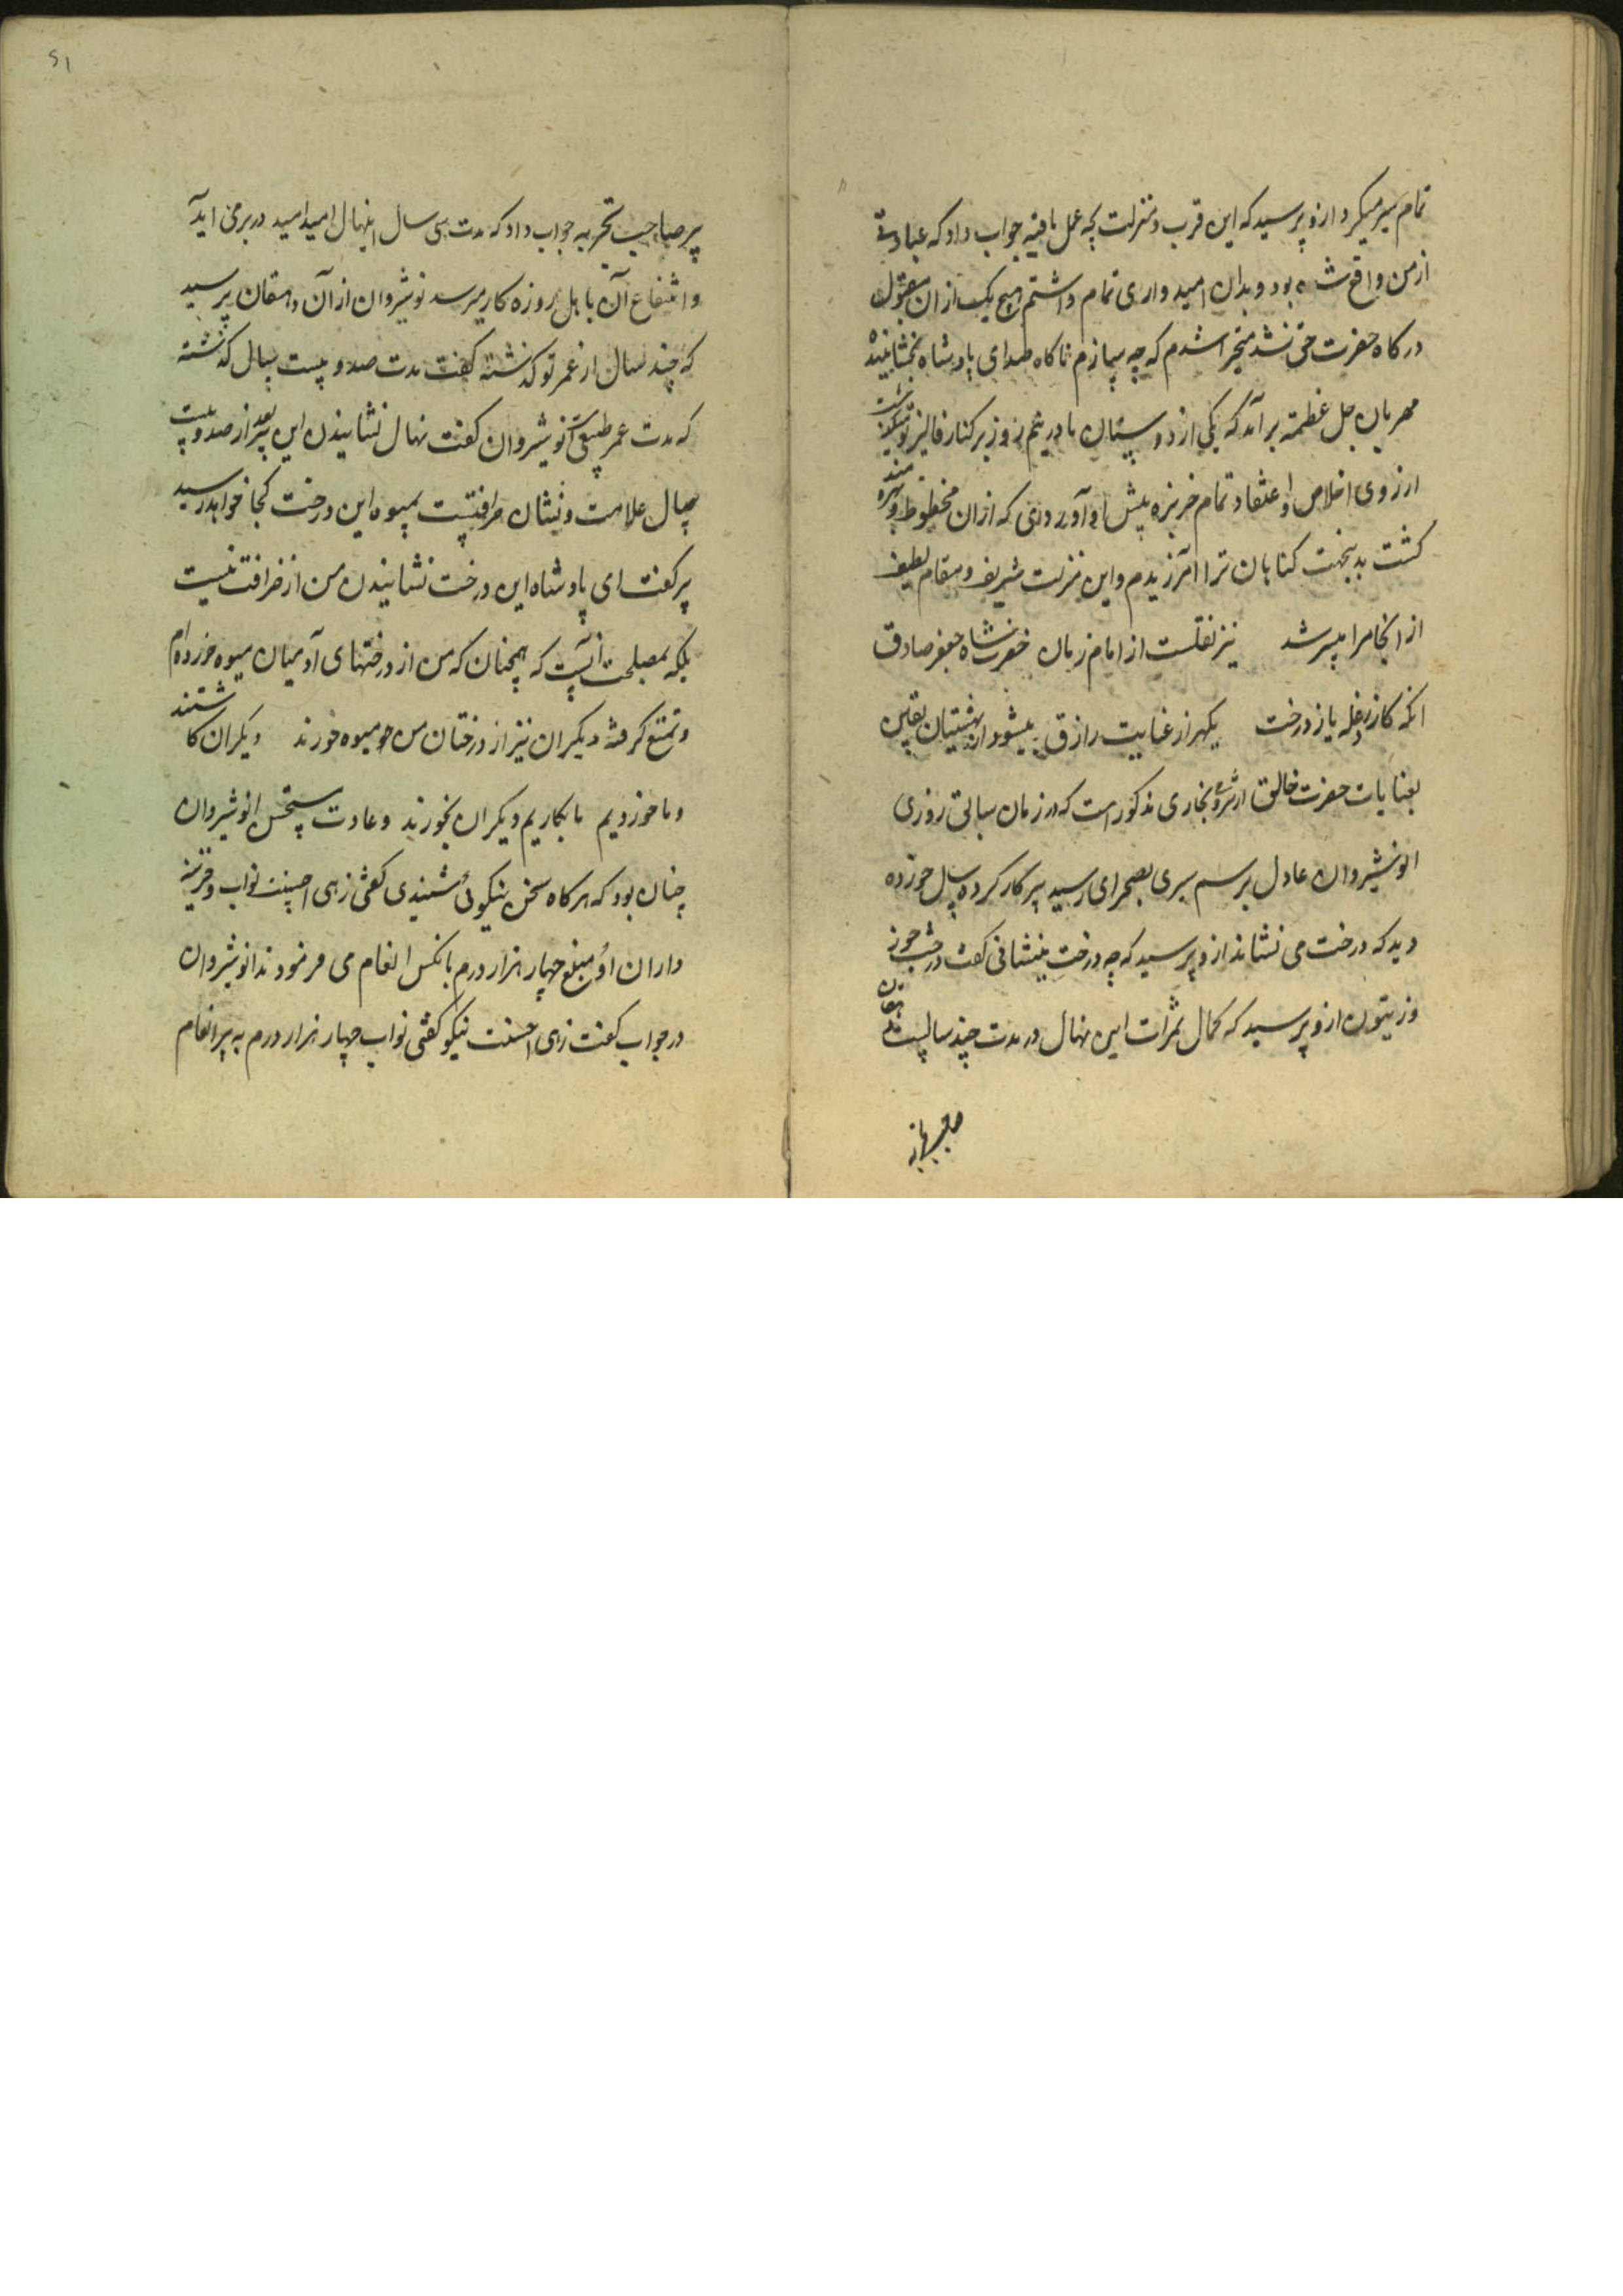 تمام سیر میکرد ازو پرسید که این قرب و منزلت بچه عمل یافتیه جواب داد که عبادتی
از من واقع شده بود و بدان امیدواری تمام داشتم هیچ یک از ان مقبول
درکاه حضرت حق نشد متحیر شدم که چه سازم ناکاه صدای پادشاه بخشاینده
مهربان جل عظمته برآمد که یکی از دوستان ما در نیم روز بر کنار فالیز تو
از روی اخلاص و اعتقاد تمام خربزه پیش او آوردی که ازان محظوظ و بهره مند
کشت بدینجهت کناهان ترا آمرزیدم و این منزلت شریف و مقام لطیف
از انجا مرا میسر شد نیز نقلست از امام زمان حضرت شاه جعفر صادق
انکه کارد غله یا درخت یکهر از عنایت رازق میشود از بهشتیان یقین
بعنایات حضرت خالق از بخاری مذکور است که در زمان سابق روزی
انوشیروان عادل برسم سیری بصحرای رسید پیر کار کرده سال خورده
دید که درخت می نشاند ازو پرسید که چه درخت مینشانی کفت درخت جوز
و زیتون ازو پرسید که کمال ثمرات این نهال در مدت چند سالست
۶۱
پیر صاحب تجربه جواب داد که مدت سی سال اینهال امید در بر می اید
و انتفاع آن باهل روزه کار میرسد نوشیروان از آن دهقان پرسید
که چند سال از عمر تو کذشته کفت مدت صد و بیست سال کذشته
که مدت عمر طبیعی است نوشیروان کفت نهال نشانیدن این پیر بعد از صد و بیست
سال علامت و نشان خرافتست بمیوه این درخت کجا خواهد رسید
پیر کفت ای پادشاه این درخت نشانیدن من از خرافت نیست
بلکه مصلحت آنست که همچنان که من از درختهای آدمیان میوه خورده ام
و تمتع کرفته دیکران نیز از درختان من میوه خورند دیکران کاشتند
و ما خوردیم ما بکاریم دیکران بخورند و عادت مستحسن انوشیروان
چنان بود که هرکاه سخن نیکوئی شنیدی کفتی زهی احسنت نواب و خزینه
داران او مبلغ چهار هزار درم بانکس انعام می فرمودند انوشیروان
در جواب کفت زهی احسنت نیکو کفتی نواب چهار هزار درم به پیر انعام